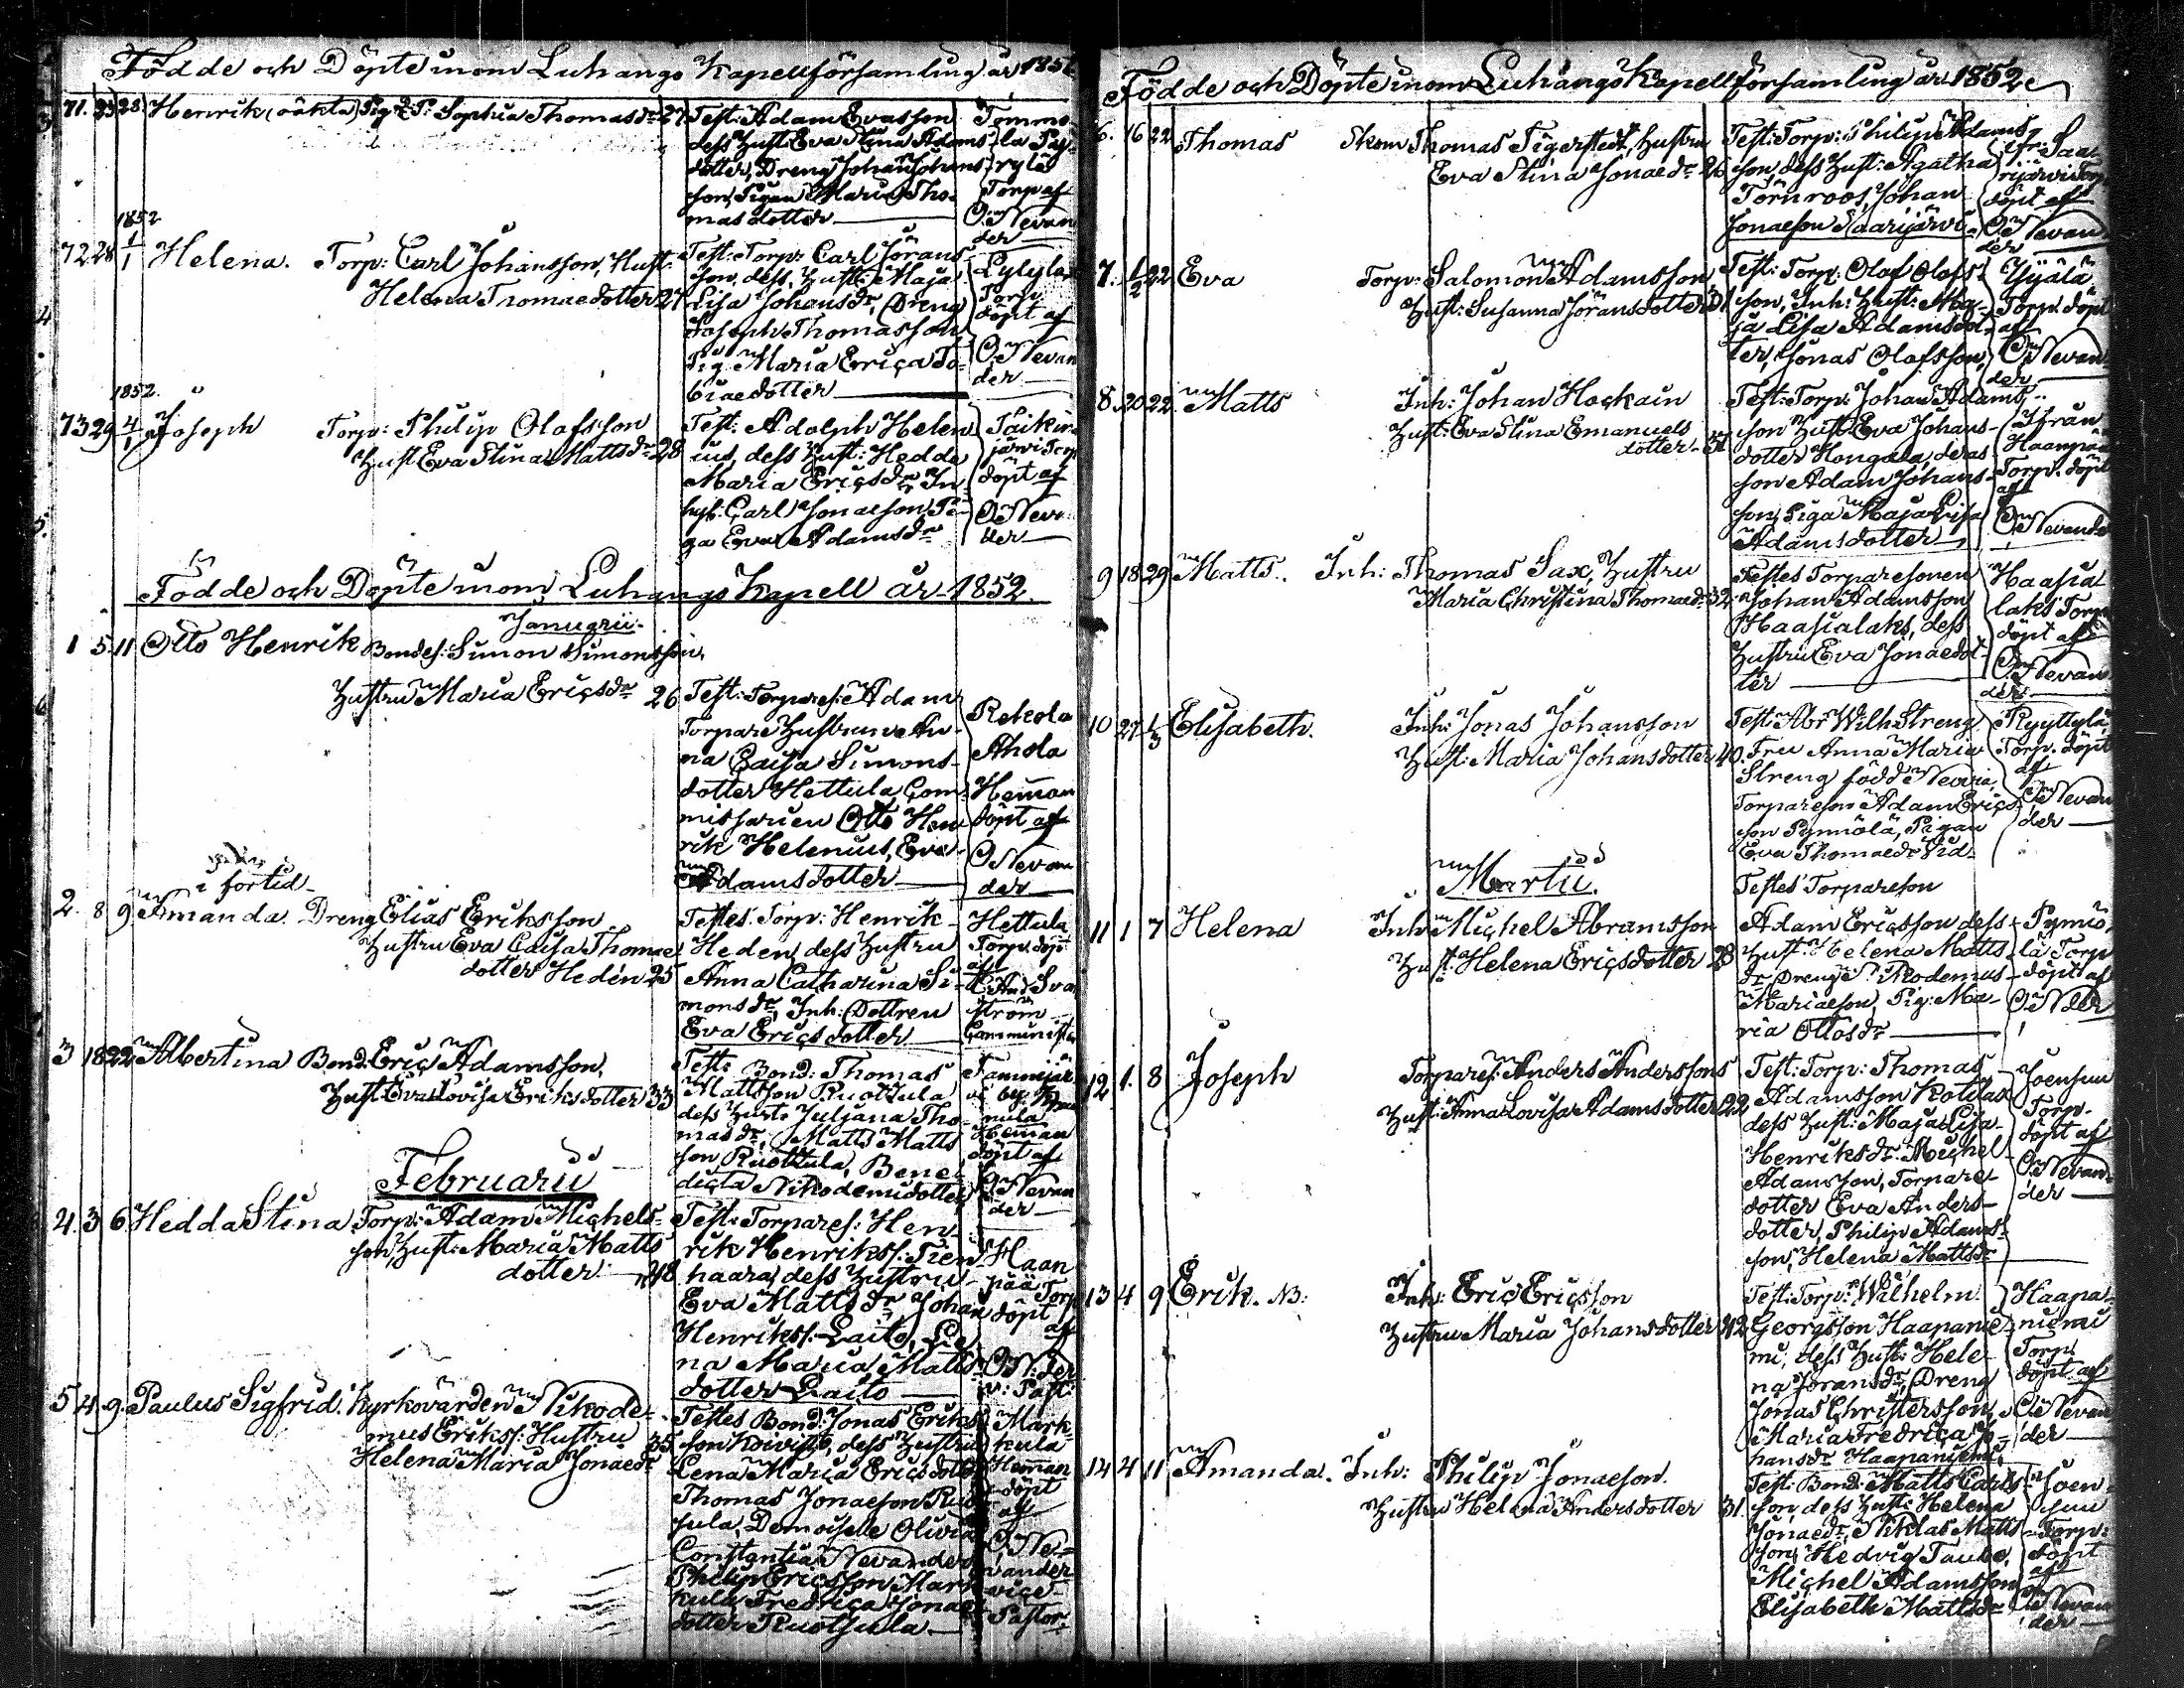 Födde och Döpte inom Luhango Kapellförsamling år 1851
71. 23 28 Henrik (oäkta) Pig: Sophia Thomasdr 27
Test: Adam Evasson
dess Hust: Eva Stina Adams-
dotter, Dreng Johan Johans-
son, Pigan Maria Tho-
masdotter
Torp af
O: Nevan
der
1852
72 28 1/1 Helena. Torp: Carl Johansson, Hust:
Helena Thomaedotter 27
Test: Torp: Carl Jörans-
son, dess Hust: Maja
Lisa Johansdr, Dreng
Joseph Thomasson,
Pig. Maria Erica To-
biaedotter
Torp
döpt af
O: Nevan
der
1852.
73 29 4/1 Joseph Torp: Philip Olofsson
Hust Eva Stina Mattsdr 28
Test: Adolph Helen
ius, dess Hust: Hedda
Maria Ericsdr In-
hys: Carl Jonaeson, Pi-
ga Eva Adamsdr
Taikin
järvi Torp
döpt af
O: Nevan
der
Födde och Döpte inom Luhango Kapell år 1852.
Januarii
1 5 11 Otto Henrik Bondes: Simon Simonsson,
Hustru Maria Ericsdr 26
Test: Torpares: Adam
Torpare Hustrun An-
na Caisa Simons-
dotter Hettula, Com-
missarien Otto Hen
rik Helenius, Eva
Adamsdotter
Rekola
Ahola
Heman
döpt af
O: Nevan
der
i fortid
2. 8 9 Amanda. Dreng Elias Eriksson
Hustru Eva Caisa Thomae
dotter Hedén 25
Testes: Torp: Henrik
Heden, dess Hustru
Anna Catharina Si-
monsdr, Inh: Dottren
Eva Ericsdotter
Hettula
Torp. döpt
af
ström
Comminister
3 18 22 Albertina Bond: Eric Adamsson,
Hust: Eva Lovisa Eriksdotter 33
Test: Bond: Thomas
Mattsson Ruottula
dess Hust: Juljana Tho-
masdr, Matts Matts
son Ruottula, Bene-
dicta Nikodemidotter
Tammijär
vi by
Heman
döpt af
O: Nevan
der
Februarii
4. 3 6 Hedda Stina Torp: Adam Michels-
son, Hust: Maria Matts
dotter 48
Test: Torpares: Hen-
rik Henrikss: Tien
haara, dess Hustru
Eva Mattsdr, Johan
Henrikss: Laito, Le
na Maria Matts-
dotter Laito
Haan
pää Torp
döpt
af
O: N: der
v: Past:
5 4 9. Paulus Sigfrid. Kyrkovärden Nikode-
mus Erikss: Hustru 35
Helena Maria Jonaedr
Testes Bond: Jonas Eriks
son Koivisto, dess Hustru
Lena Maria Ericsdotter
Thomas Jonaeson Ruo
sula, Demoiselle Olivia
Constantia Nevander
Philip Ericsson Mark
kula Fredrica Jonae
dotter Ruotsula
Mark-
kula
Heman
döpt
af
O: Ne-
vander
vice
Pastor
Födde och Döpte inom Luhango Kapellförsamling år 1852
6. 16 22 Thomas Thomas Tigerstedt, Hustru
Eva Stina Jonaedr 26
Test: Torp: Philip Adams-
son, dess Hust: Agatha
Törnroos, Johan
Jonaeson Saarijärvi
ifr: Saa
rijärvi Torp
döpt af
O: Nevan
der
7. 1/2 22 Eva Torp: Salomon Adamsson,
Hust: Susanna Jöransdotter 31
Test: Torp: Olof Olofs-
son, Inh: Hust: Ma-
ja Lisa Adamsdot-
ter, Jonas Olofsson,
Torp. döpt
af
O: Nevan
der
8. 20 22. Matts Inh: Johan Hoskain
Hust: Eva Stina Emanuels
dotter 37
Test: Torp: Johan Adams-
son Hust: Eva Johans-
dotter Hongala, deras
son Adam Johans-
son, Piga Maja Lisa
Adamsdotter
Ifrån
Haanpää
Torp. döpt
af
O: Nevande
9 18 29 Matts.. Inh: Thomas Sax, Hustru
Maria Christina Thomaedr 32
Testes Torparesonen
Johan Adamsson
Haasialaks, dess
Hustru Eva Jonaedot-
ter
Haasia
laks Torp
döpt af
O: Nevan
der
10 27 1/3 Elisabeth. Inh: Jonas Johansson
Hust: Maria Johansdotter 40.
Test: Abr Wilh: Streng,
Fru Anna Maria
Streng född Nevvia,
Torpareson Adam Erics-
son Pynnölä, Pigan
Eva Thomaedr
Ryyttylä
Torp. döpt
af
O: Nevan
der
Martii.
11 1 7 Helena Inh: Michel Abramsson
Hust: Helena Ericsdotter 28
Testes Torpareson
Adam Ericsson dess
Hust: Helena Matts
dr Dreng: Nikodemus
Mariaeson, Pig: Ma-
ria Ottosdr
Pynnö
lä Torp
döpt af
O: N der
12 1. 8 Joseph Torpares: Anders Anderssons
Hust: Anna Lovisa Adamsdotter 22
Test: Torp: Thomas
Adamsson Kotilas
dess Hust: Maja Lisa
Henriksdr Michel
Adamsson, Torpare
dotter Eva Anders-
dotter, Philip Adams-
son, Helena Mattsdr
Joensuu
Torp.
döpt af
O: Nevan
der
13 4 9 Erik. NB: Inh: Eric Ericsson
Hustru Maria Johansdotter 42
Test: Torp: Wilhelm
Georgsson Haapanie
mi, dess Hust: Hele-
na Joransdr, Dreng
Jonas Christersson,
Maria Fredrica Jo-
hansdr Haapaniemi
Haapa-
niemi
Torp.
döpt af
O: Nevan
der
14 4 11 Amanda. Inh: Philip Jonaeson.
Hustru Helena Andersdotter 31.
Test: Bond: Matts Carls-
son, dess Hust: Helena
Jonaedr, Niklas Matts-
son, Hedvig Taube,
Michel Adamsson
Elisabeth Mattsdr
Joen
suu
Torp:
döpt
af
O: Nevan
der